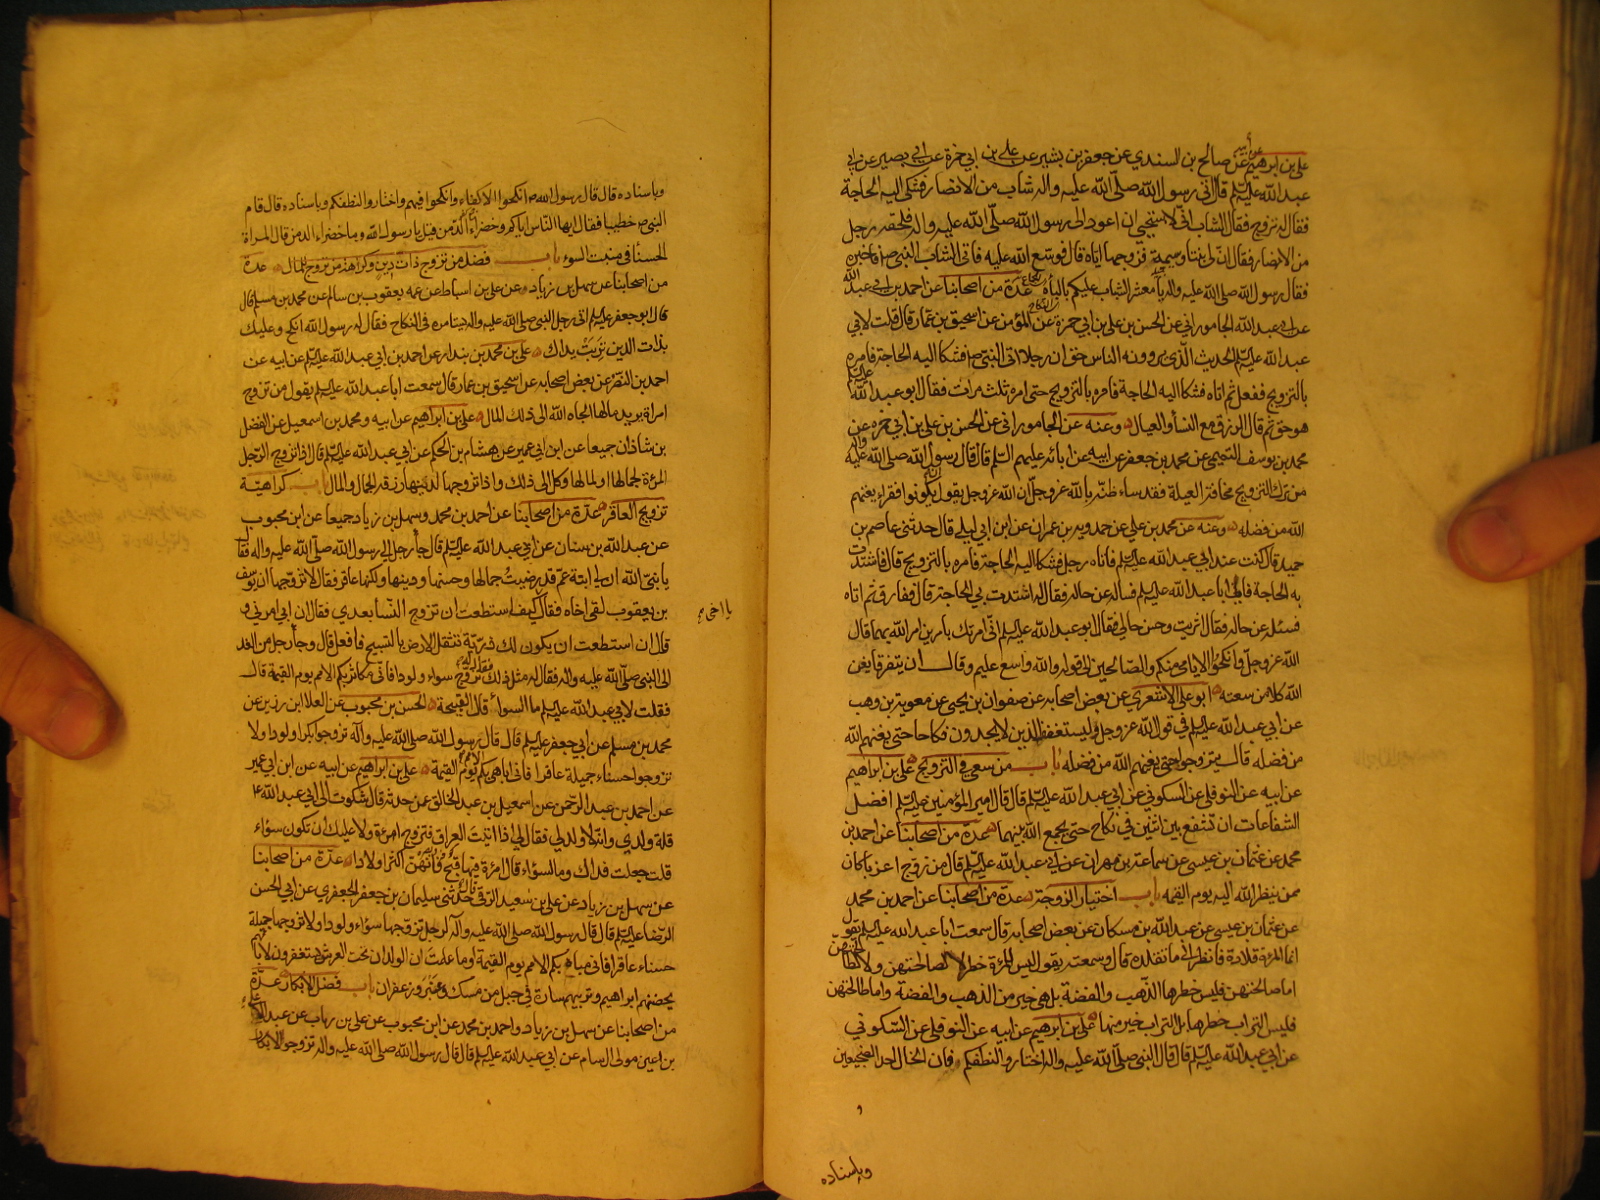 علي بن ابرهيم عن ابيه عن صالح بن السندي عن جعفر بن بشير عن علي بن ابي حمزة عن ابي بصير عن ابي
عبد الله عليه السلم قال اتى رسول الله صلى الله عليه واله شاب من الانصار فشكى اليه الحاجة
فقال له تزوج فقال الشاب اني لاستحيي ان اعود الى رسول الله صلى الله عليه واله فلحقه رجل
من الانصار فقال ان لي بنتا وسيمة فزوجها اياه قال فوسع الله عليه فاتى الشاب النبي ص فاخبره
فقال رسول الله صلى الله عليه واله يا معشر الشباب عليكم بالباه عدة من اصحابنا عن احمد بن ابي عبد الله
عن ابي عبد الله الجاموراني عن الحسن بن علي بن ابي حمزة عن المؤمن عن اسحق بن عمار قال قلت لابي
عبد الله عليه السلم الحديث الذي يروونه الناس حق ان رجلا اتى النبي ص فشكا اليه الحاجة فامره
بالتزويج ففعل ثم اتاه فشكا اليه الحاجة فامره بالتزويج حتى امره ثلث مرات فقال ابو عبد الله عليه السلم
هو حق ثم قال الرزق مع النسأ والعيال وعنه عن الجاموراني عن الحسن بن علي بن ابي حمزه عن
محمد بن يوسف التميمي عن محمد بن جعفر عن ابيه عن ابائه عليهم السلم قال قال رسول الله صلى الله عليه واله
من ترك التزويج مخافة العيلة فقد ساء ظنه بالله عز وجل ان الله عز وجل يقول ان يكونوا فقراء يغنهم
الله من فضله وعنه عن محمد بن علي عن حمدويه بن عمران عن ابن ابي ليلى قال حدثني عاصم بن
حميد قال كنت عند ابي عبد الله عليه السلم فاتاه رجل فشكا اليه الحاجة فامره بالتزويج قال فاشتدت
به الحاجة فاتى ابا عبد الله عليه السلم فساله عن حاله فقال له اشتدت بي الحاجة قال ففارق ثم اتاه
فسئله عن حاله فقال اثريت وحسن حالي فقال ابو عبد الله عليه السلم اني امرتك بامرين امر الله بهما قال
الله عز وجل وانكحوا الايامى منكم والصالحين الى قوله والله واسع عليم وقال ان يتفرقا يغن
الله كلا من سعته ابو علي الاشعري عن بعض اصحابه عن صفوان بن يحيى عن معوية بن وهب
عن ابي عبد الله عليه السلم في قول الله عز وجل وليستعفف الذين لا يجدون نكاحا حتى يغنيهم الله
من فضله قال يتزوجوا حتى يغنيهم الله من فضله باب من سعى في التزويج علي بن ابراهيم
عن ابيه عن النوفلي عن السكوني عن ابي عبد الله عليه السلم قال قال امير المؤمنين عليه السلم افضل
الشفاعات ان تشفع بين اثنين في نكاح حتى يجمع الله بينهما عدة من اصحابنا عن احمد بن
محمد عن عثمان بن عيسى عن سماعة بن مهران عن ابي عبد الله عليه السلم قال من زوج اعزبا كان
ممن ينظر الله اليه يوم القيمه باب اختيار الزوجة عدة من اصحابنا عن احمد بن محمد
عن عثمان بن عيسى عن عبد الله بن مسكان عن بعض اصحابه قال سمعت ابا عبد الله عليه السلم يقول
انما المرئة قلادة فانظر الى ما تقلده قال وسمعته يقول ليس للمرئة خطر لا لصالحتهن ولا لطالحتهن
اما صالحتهن فليس خطرها الذهب والفضة بل هي خير من الذهب والفضة واما طالحتهن
فليس التراب خطرها بل التراب خير منها علي بن ابرهيم عن ابيه عن النوفلي عن السكوني
عن ابي عبد الله عليه السلم قال قال النبي صلى الله عليه واله اختاروا لنطفكم فان الخال احد الضجيعين
وباسناده
وباسناده قال قال رسول الله ص انكحوا الاكفاء وانكحوا فيهم واختاروا لنطفكم وباسناده قال قام
النبي ص خطيبا فقال ايها الناس اياكم وخضراء الدمن قيل يا رسول الله وما خضراء الدمن قال المراة
الحسنأ في منبت السوء باب فضل من تزوج ذات دين وكراهة من تزوج للمال عدة
من اصحابنا عن سهل بن زياد عن علي بن اسباط عن عمه يعقوب بن سالم عن محمد بن مسلم قال
قال ابو جعفر عليه السلم اتى رجل النبي صلى الله عليه واله يستامره في النكاح فقال له رسول الله انكح وعليك
بذات الدين تربت يداك علي بن محمد بن بندار عن احمد بن ابي عبد الله عليه السلم عن ابيه عن
احمد بن النضر عن بعض اصحابه عن اسحق بن عمار قال سمعت ابا عبد الله عليه السلم يقول من تزوج
امراة يريد مالها الجاه الله الى ذلك المال علي بن ابراهيم عن ابيه ومحمد بن اسمعيل عن الفضل
بن شاذان جميعا عن ابن ابي عمير عن هشام بن الحكم عن ابي عبد الله عليه السلم قال اذا تزوج الرجل
المرئة لجمالها او لمالها وكل الى ذلك واذا تزوجها لدينها رزقه الجمال والمال باب كراهية
تزويج العاقر عدة من اصحابنا عن احمد بن محمد وسهل بن زياد جميعا عن ابن محبوب
عن عبد الله بن سنان عن ابي عبد الله عليه السلم قال جأ رجل الى رسول الله صلى الله عليه واله فقا
يا نبي الله ان لي ابنة عم قد رضيت جمالها وحسنها ودينها ولكنها عاقر فقال لا تزوجها ان يوسف
بن يعقوب لقى اخاه فقال كيف استطعت ان تزوج النسأ بعدي فقال ان ابي امرني و
يا اخي
قال ان استطعت ان يكون لك ذرية تثقل الارض بالتسبيح فافعل قال وجأ رجل من الغد
الى النبي صلى الله عليه واله فقال له مثل ذلك فقال له تزوج سواء ولودا فاني مكاثر بكم الامم يوم القيمة قال
فقلت لابي عبد الله عليه السلم ما السوا قال القبيحة الحسن بن محبوب عن العلا ابن رزين عن
محمد بن مسلم عن ابي جعفر عليه السلم قال قال رسول الله صلى الله عليه واله تزوجوا بكرا ولودا ولا
تزوجوا حسناء جميلة عاقرا فاني اباهي بكم الامم يوم القيمة علي بن ابراهيم عن ابيه عن ابن ابي عمير
عن احمد بن عبد الرحمن عن اسمعيل بن عبد الخالق عمن حدثه قال شكوت الى ابي عبد الله ع
قلة ولدي وانه لا ولد لي فقال لي اذا اتيت العراق فتزوج امرئة ولا عليك ان تكون سواء
قلت جعلت فداك وما السواء قال امرئة فيها قبح فانهن اكثر اولادا عدة من اصحابنا
عن سهل بن زياد عن علي بن سعيد الرقي قال حدثني سليمان بن جعفر الجعفري عن ابي الحسن
الرضا عليه السلم قال قال رسول الله صلى الله عليه واله لرجل تزوجها سواء ولودا ولا تزوجها جميلة
حسناء عاقرا فاني مباه بكم الامم يوم القيمة وما علمت ان الولدان تحت العرش يستغفرون لابائهم
يحضنهم ابراهيم وتربيهم سارة في جبل من مسك وعنبر وزعفران باب فضل الابكار عدة
من اصحابنا عن سهل بن زياد واحمد بن محمد عن ابن محبوب عن علي بن رئاب عن عبد الاعلى
بن اعين مولى ال سام عن ابي عبد الله عليه السلم قال قال رسول الله صلى الله عليه واله تزوجوا الابكار